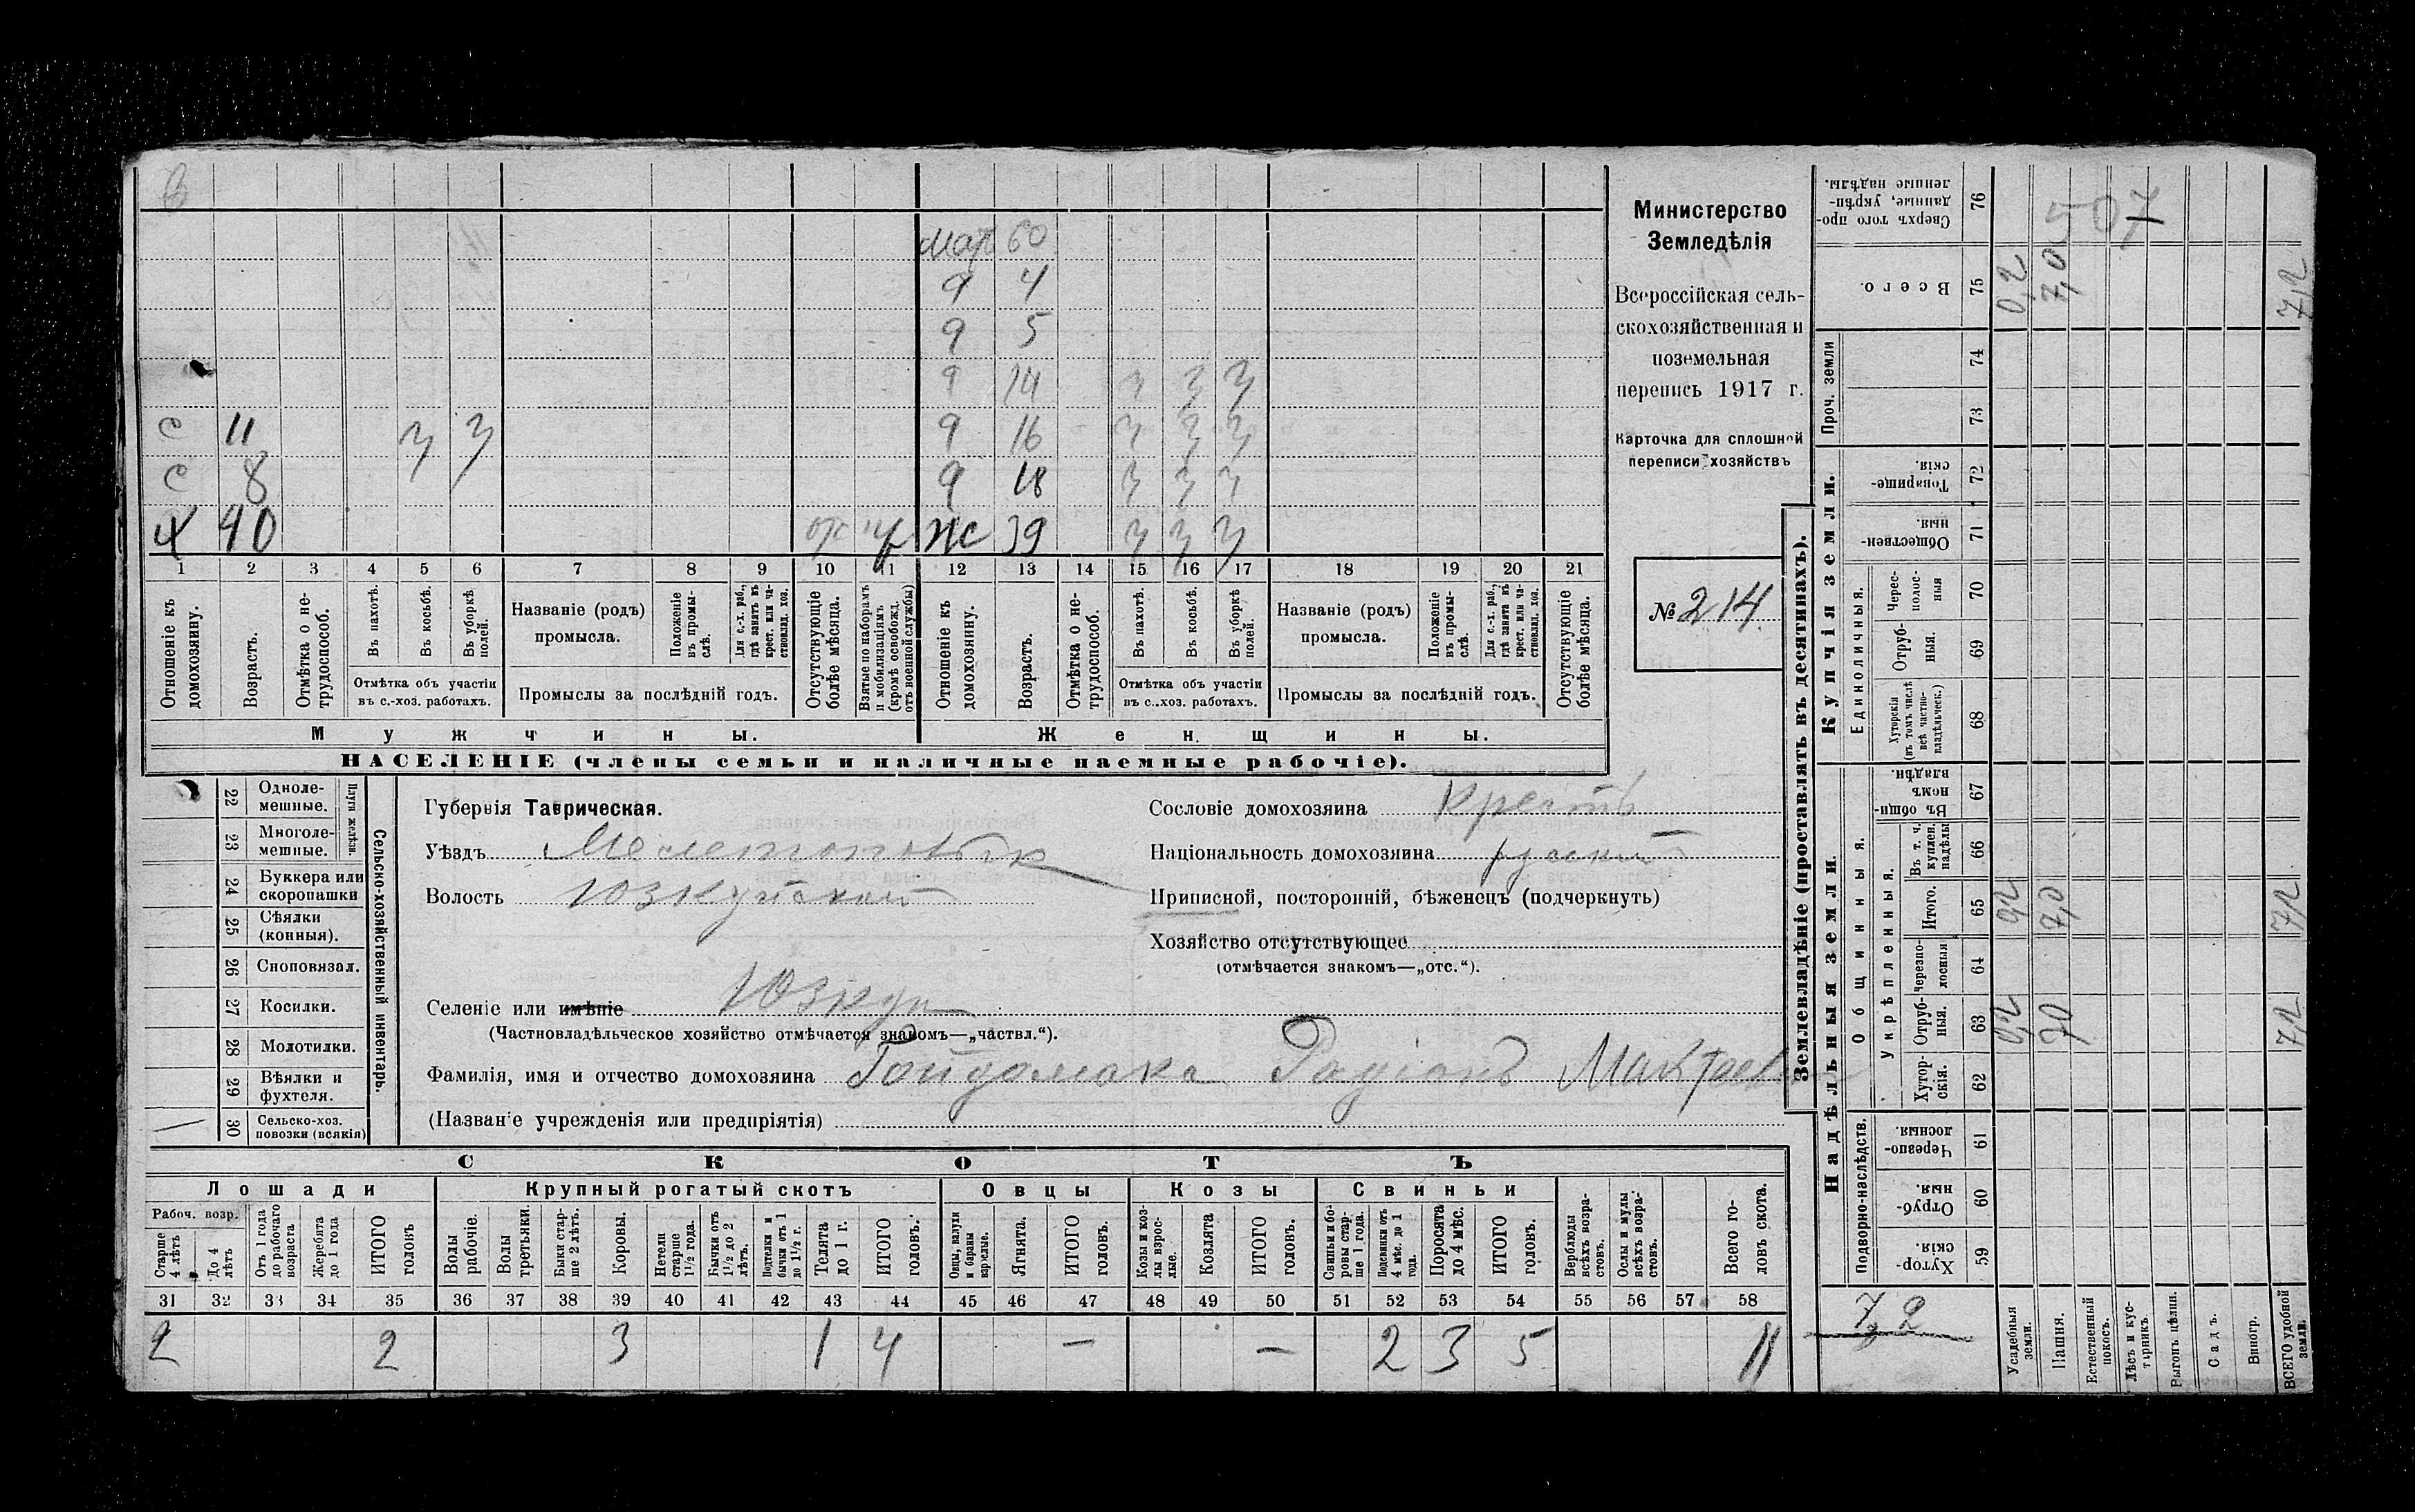 Мат 60
9 4
9 5
9 14 3 3 3
с 11 3 3 9 16 3 3 3
с 8 9 18 3 3 3
Х 40 отс Ж 39 3 3 3
1 2 3 4 5 6 7 8 9 10 11 12 13 14 15 16 17 18 19 20 21
Отношеніе къ домохозяину.
Возрастъ.
Отмѣтка о нетрудоспособ.
Въ пахотѣ.
Въ косьбѣ.
Въ уборкѣ полей.
Отмѣтка объ участіи
въ с.-хоз. работахъ.
Названіе (родъ)
промысла.
Положеніе въ промыслѣ.
Для с.-х. раб., гдѣ занятъ въ крест. или частновлад. хоз.
Промыслы за послѣдній годъ.
Отсутствующіе болѣе мѣсяца.
Взятые по наборамъ и мобилизаціямъ (кромѣ освобожд. отъ военной службы)
Отношеніе къ домохозяину.
Возрастъ.
Отмѣтка о нетрудоспособ.
Въ пахотѣ.
Въ косьбѣ.
Въ уборкѣ полей.
Отмѣтка объ участіи
въ с.-хоз. работахъ.
Названіе (родъ)
промысла.
Положеніе въ промыслѣ.
Для с.-х. раб., гдѣ занята въ крест. или частновлад. хоз.
Промыслы за послѣдній годъ.
Отсутствующіе болѣе мѣсяца.
Мужчины. Женщины.
НАСЕЛЕНІЕ (члены семьи и наличные наемные рабочіе).
Министерство
Земледѣлія
Всероссійская сель-
скохозяйственная и
поземельная
перепись 1917 г.
Карточка для сплошной
переписи хозяйствъ
№ 214
22 Одноле-
мешные.
23 Многоле-
мешные.
Плуги желѣзн.
24 Буккера или
скоропашки
25 Сѣялки
(конныя).
26 Сноповязал.
27 Косилки.
28 Молотилки.
29 Вѣялки и
фухтеля.
30 Сельско-хоз.
повозки (всякія)
Сельско-хозяйственный инвентарь.
Губернія Таврическая.
Уѣздъ Мелитопольск
Волость Юзкуйской
Селеніе или имѣніе Юзкуи
(Частновладѣльческое хозяйство отмѣчается знакомъ—„частвл.“).
Фамилія, имя и отчество домохозяина Гойдамака Родіонъ
(Названіе учрежденія или предпріятія)
Сословіе домохозяина Крестъ
Національность домохозяина русскій
Приписной, посторонній, бѣженецъ (подчеркнуть)
Хозяйство отсутствующее
(отмѣчается знакомъ—„отс.“).
СКОТЪ
Лошади Крупный рогатый скотъ Овцы Козы Свиньи
Рабоч. возр.
Старше 4 лѣтъ
До 4 лѣтъ
Отъ 1 года до рабочаго возраста
Жеребята до 1 года
ИТОГО головъ
Волы рабочіе.
Волы третьяки.
Быки старше 2 лѣтъ.
Коровы.
Нетели старше 1½ года.
Бычки отъ 1½ до 2 лѣтъ.
Подтелки и бычки отъ 1 до 1½ г.
Телята до 1 г.
ИТОГО головъ.
Овцы, валухи и бараны взрослые.
Ягнята.
ИТОГО головъ.
Козы и козлы взрослые.
Козлята
ИТОГО головъ.
Свиньи и боровы старше 1 года.
Подсвинки отъ 4 мѣс. до 1 года.
Поросята до 4 мѣс.
ИТОГО головъ.
Верблюды всѣхъ возрастовъ.
Ослы и мулы всѣхъ возрастовъ.
Всего головъ скота.
31 32 33 34 35 36 37 38 39 40 41 42 43 44 45 46 47 48 49 50 51 52 53 54 55 56 57 58
2 2 3 1 4 — — 2 3 5 11
Землевладѣніе (проставлять въ десятинахъ).
Надѣльныя земли. Купчія земли.
Подворно-наслѣдств.
Общинныя.
Укрѣпленныя.
Единоличныя.
Проч. земли
Сверхъ того проданные, укрѣпленные надѣлы. 76 507
Всего. 75 0,2 7,0 7,2
74
73
Товарищескія. 72
Общественныя. 71
Чересполосныя 70
Отрубныя. 69
Хуторскія (въ томъ числѣ всѣ частновладѣльческ.) 68
Въ общинномъ владѣн. 67
Въ т. ч. куплен. надѣлы 66
Итого. 65 0,2 7,0 7,2
Черезполосныя 64
Отрубныя. 63 0,2 70 7,2
Хуторскія. 62
Черезполосныя. 61
Отрубныя. 60
Хуторскія. 59
7,2
Усадебныя земли.
Пашня.
Естественный покосъ.
Лѣсъ и кустарникъ.
Выгонъ, цѣлин.
Садъ.
Виногр.
ВСЕГО удобной земли.